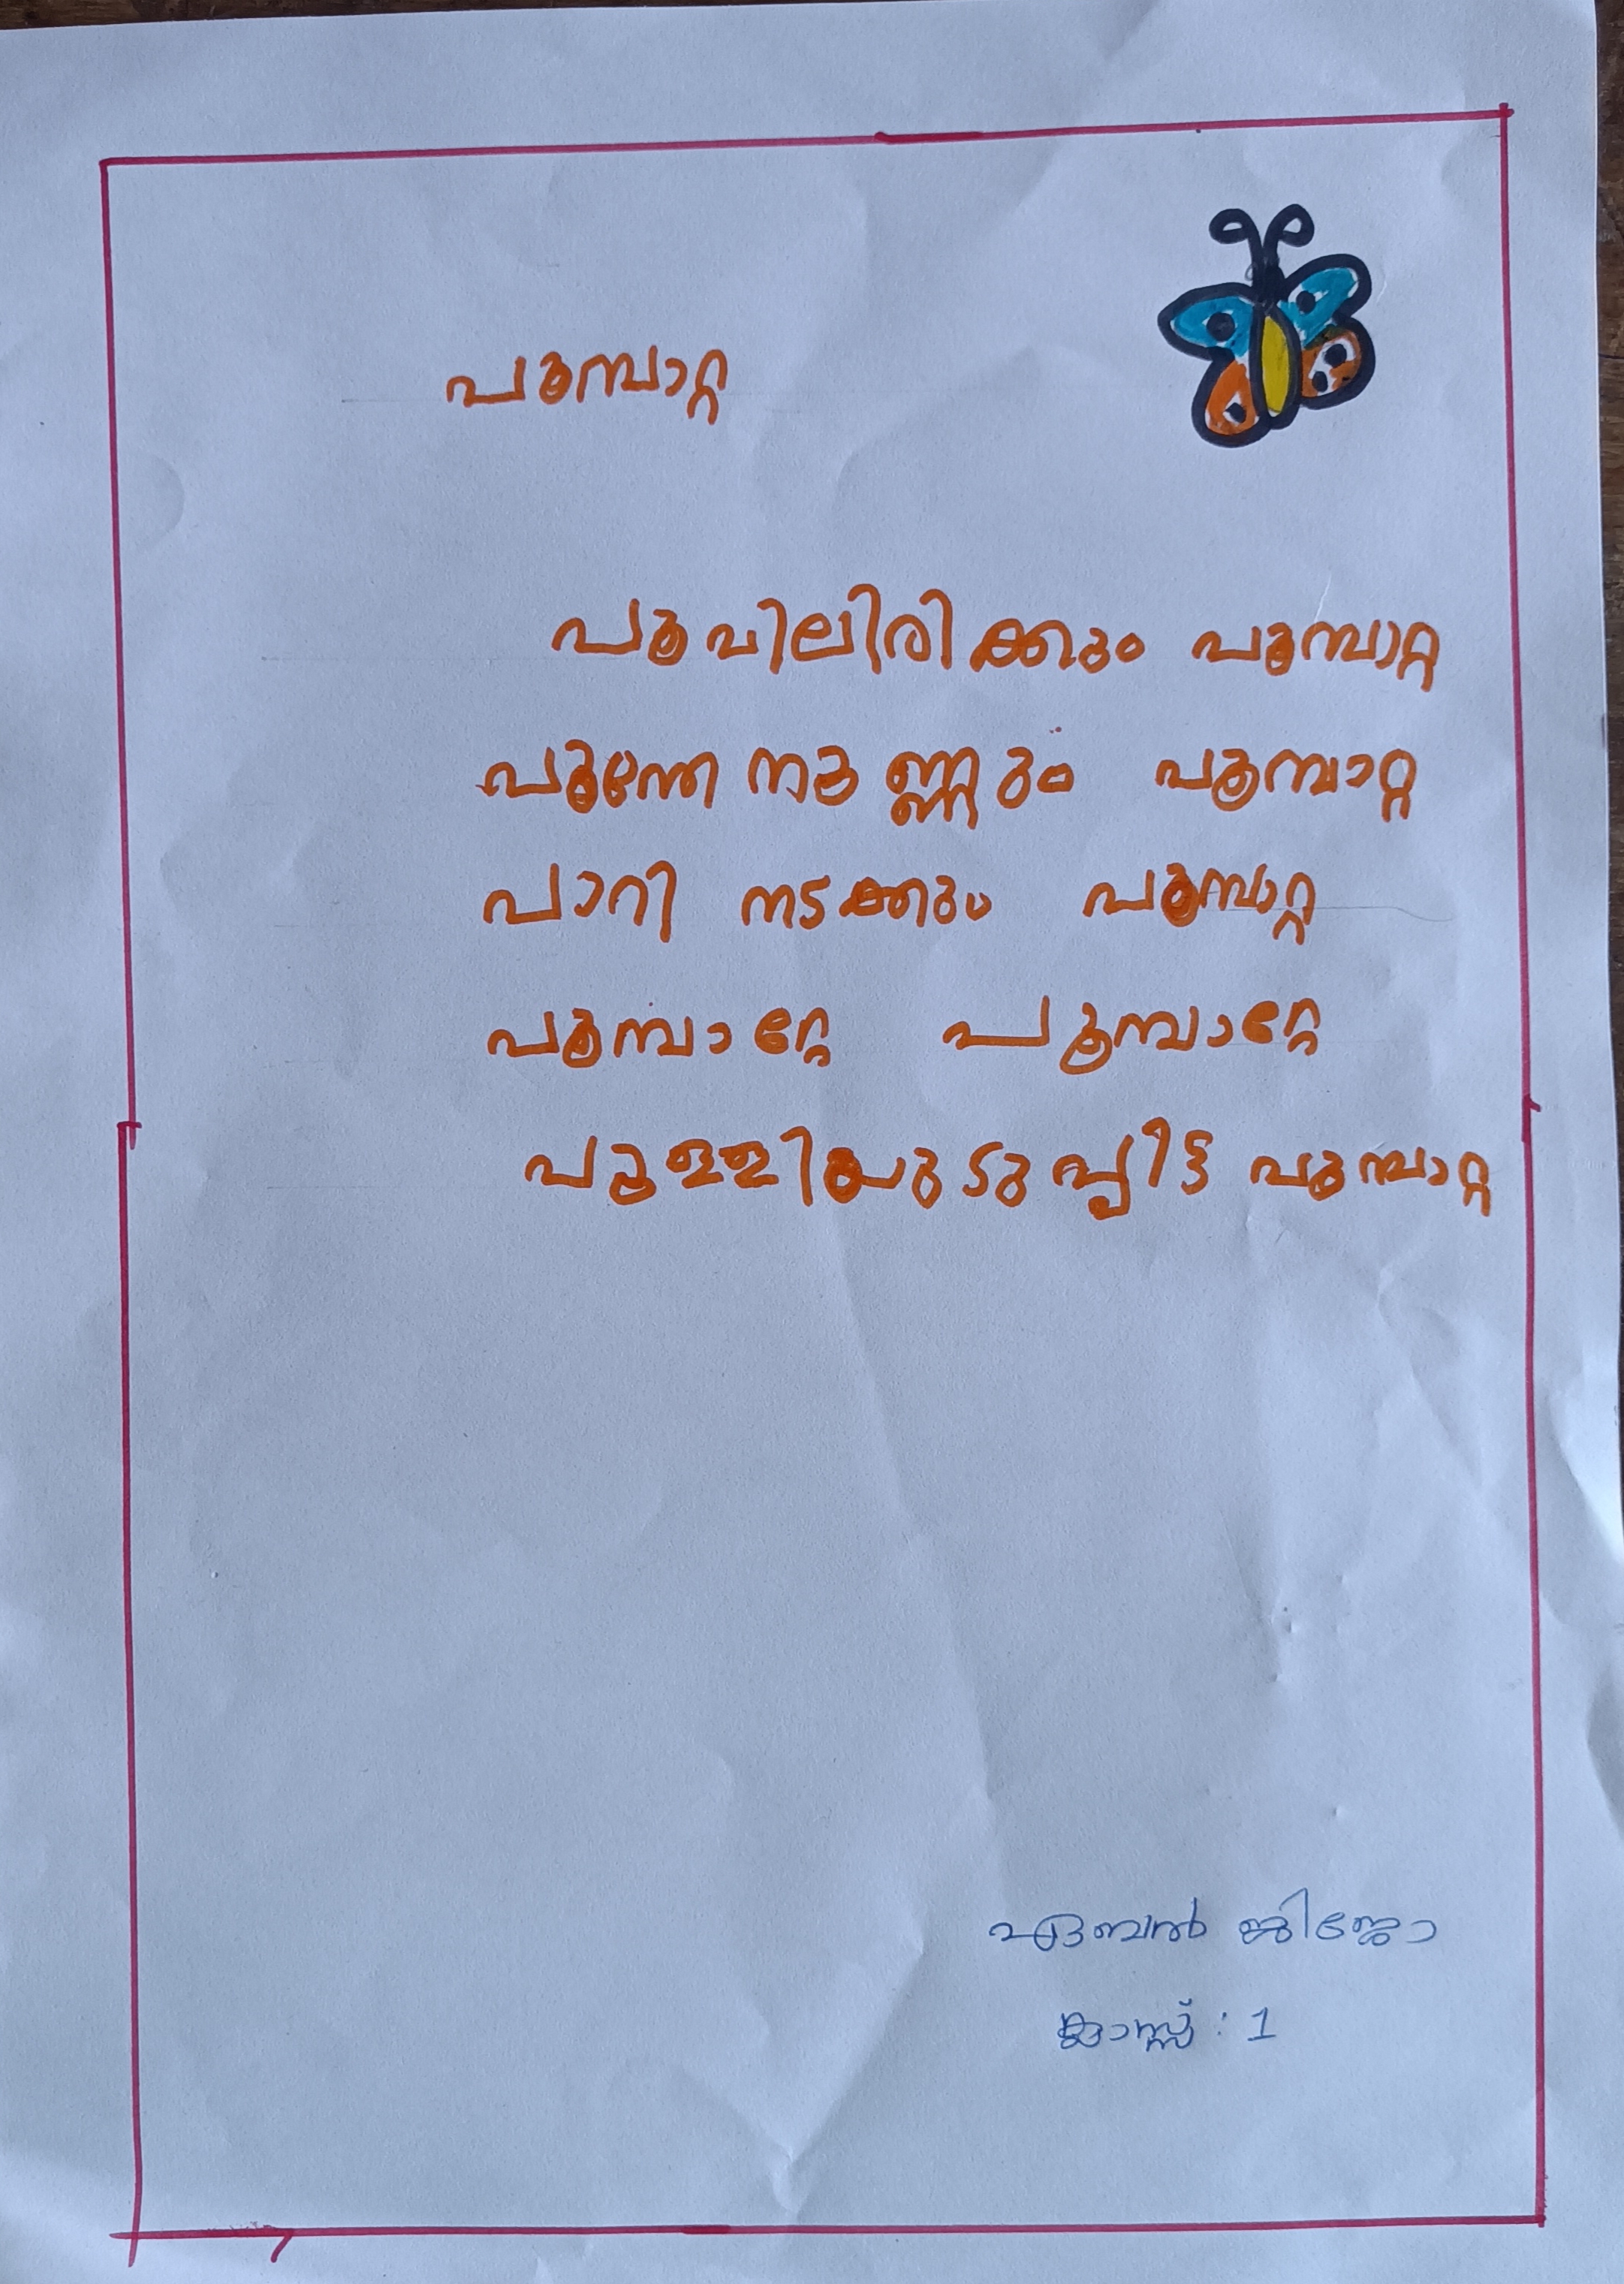 പൂമ്പാറ്റ
പൂവിലിരിക്കും പൂമ്പാറ്റ
പൂന്തേനൂണ്ണും പൂമ്പാറ്റ
പാറി നടക്കും പൂമ്പാറ്റ
പൂമ്പാറ്റേ പൂമ്പാറ്റേ
പുള്ളിയുടുപ്പിട്ട പൂമ്പാറ്റ
ഏബൽ ജിജോ
ക്ലാസ്സ് : 1